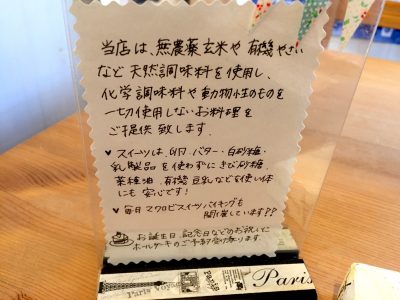 当店は、無農薬玄米や有機やさい
など天然調味料を使用し、
化学調味料や動物性のものを
一切使用しないお料理を
ご提供致します。
♥ スイーツは、卵、バター・白砂糖・
乳製品を使わずにきび砂糖、
菜種油、有機豆乳などを使い体
にも安心です!
♥ 毎月マクロビスイーツバイキングも
開催しています??
お誕生日、記念日などのお祝いに
ホールケーキのご予約受け賜ります。
Paris Voyage
Paris